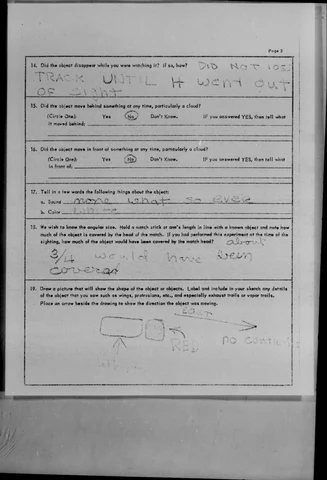 Page 3
14. Did the object disappear while you were watching it? If so, how? DID NOT LOSE
TRACK UNTIL it WENT OUT
OF Sight
15. Did the object move behind something at any time, particularly a cloud?
(Circle One): Yes No Don't Know. IF you answered YES, then tell what
it moved behind:
16. Did the object move in front of something at any time, particularly a cloud?
(Circle One): Yes No Don't Know. IF you answered YES, then tell what
in front of:
17. Tell in a few words the following things about the object:
a. Sound none what so ever
b. Color white
18. We wish to know the angular size. Hold a match stick at arm's length in line with a known object and note how
much of the object is covered by the head of the match. If you had performed this experiment at the time of the
sighting, how much of the object would have been covered by the match head? about
3/4 would have been
covered
19. Draw a picture that will show the shape of the object or objects. Label and include in your sketch any details
of the object that you saw such as wings, protrusions, etc., and especially exhaust trails or vapor trails.
Place an arrow beside the drawing to show the direction the object was moving.
EAST
RED
NO